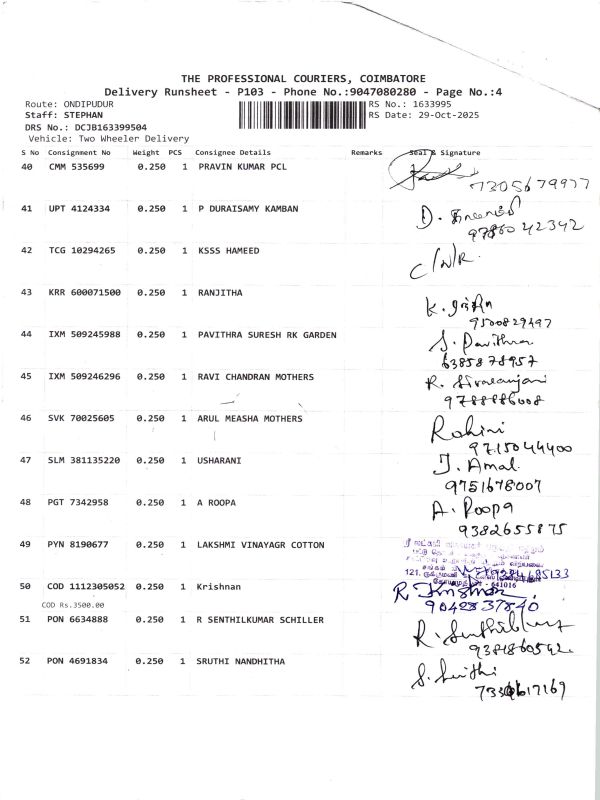 THE PROFESSIONAL COURIERS, COIMBATORE
Delivery Runsheet - P103 - Phone No.:9047080280 - Page No.:4
Route: ONDIPUDUR RS No.: 1633995
Staff: STEPHAN RS Date: 29-Oct-2025
DRS No.: DCJB163399504
Vehicle: Two Wheeler Delivery
S No Consignment No Weight PCS Consignee Details Remarks Seal & Signature
40 CMM 535699 0.250 1 PRAVIN KUMAR PCL
7305679977
41 UPT 4124334 0.250 1 P DURAISAMY KAMBAN D.
9786042342
42 TCG 10294265 0.250 1 KSSS HAMEED C/N/R.
43 KRR 600071500 0.250 1 RANJITHA K.
9500829497
44 IXM 509245988 0.250 1 PAVITHRA SURESH RK GARDEN S. Pavithra
6385878957
45 IXM 509246296 0.250 1 RAVI CHANDRAN MOTHERS R. Sivaranjani
9788886008
46 SVK 70025605 0.250 1 ARUL MEASHA MOTHERS Rohini
9715044400
47 SLM 381135220 0.250 1 USHARANI J. Amal.
9751678007
48 PGT 7342958 0.250 1 A ROOPA A. Roopa
9382655875
49 PYN 8190677 0.250 1 LAKSHMI VINAYAGR COTTON
121.
- 641016
50 COD 1112305052 0.250 1 Krishnan R. Krishnan
9042837840
COD Rs.3500.00
51 PON 6634888 0.250 1 R SENTHILKUMAR SCHILLER R. Senthilkumar
9381860592.
52 PON 4691834 0.250 1 SRUTHI NANDHITHA S. Sruthi